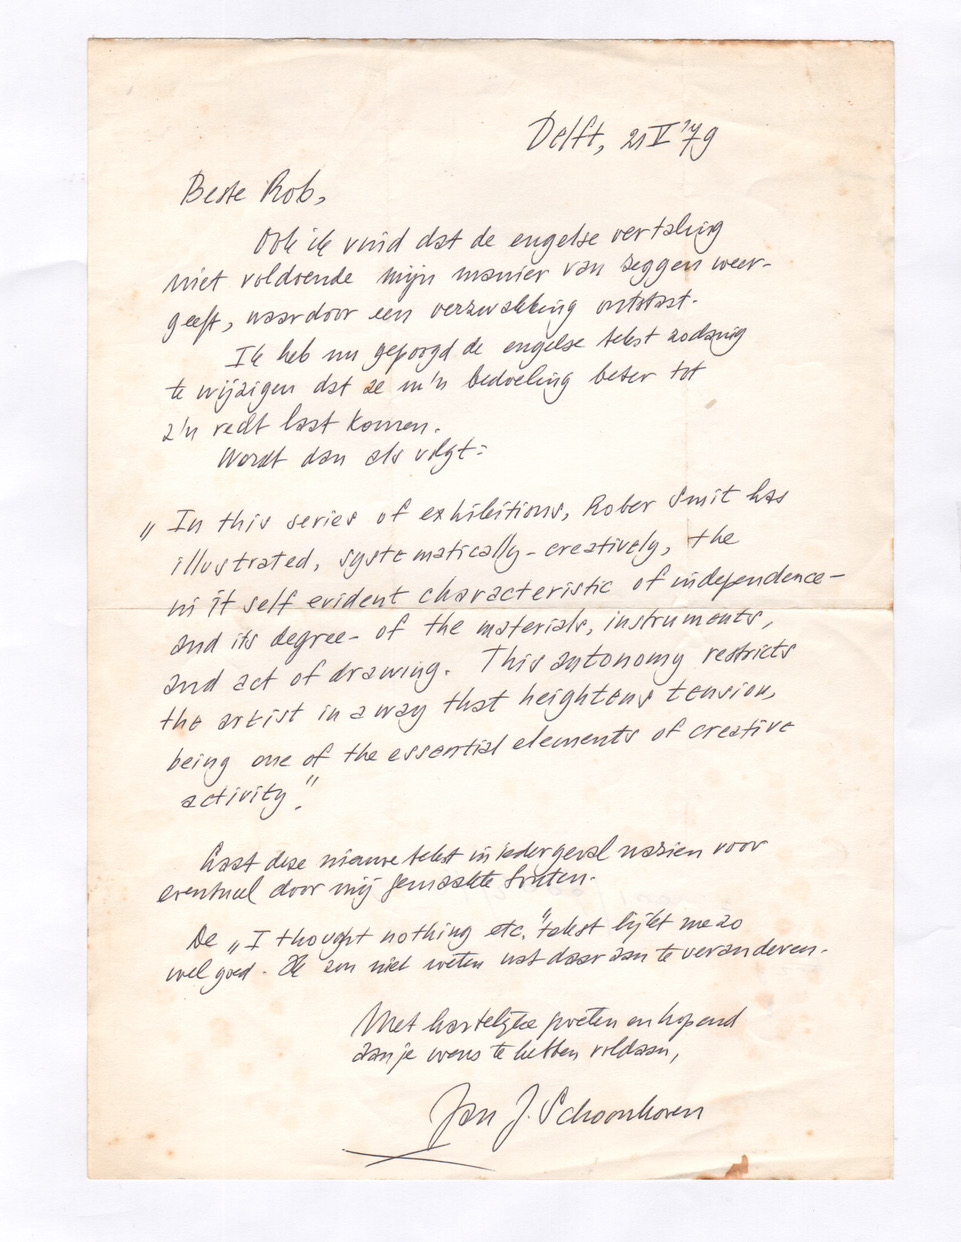 Delft, 21 V '79
Beste Rob,
Ook ik vind dat de engelse vertaling
niet voldoende mijn manier van zeggen weer-
geeft, waardoor een verzwakking ontstaat.
Ik heb nu gepoogd de engelse tekst zodanig
te wijzigen dat ze m'n bedoeling beter tot
z'n recht laat komen.
Wordt dan als volgt:
„ In this series of exhibitions, Rober Smit has
illustrated, systematically-creatively, the
in it self evident characteristic of independence-
and its degree- of the materials, instruments,
and act of drawing. This autonomy restricts
the artist in a way that heightens tension,
being one of the essential elements of creative
activity."
Laat deze nieuwe tekst in ieder geval nazien voor
eventueel door mij gemaakte fouten.
De „I thought nothing etc." tekst lijkt me zo
wel goed. Ik zou niet weten wat daar aan te veranderen.
Met hartelijke groeten en hopend
aan je wens te hebben voldaan,
Jan J. Schoonhoven